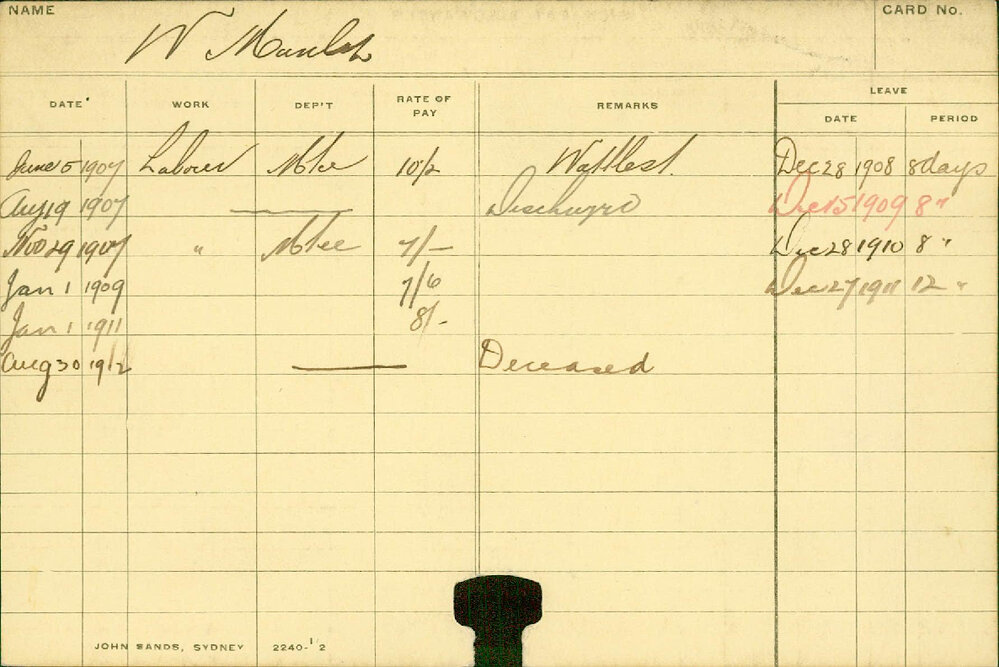 NAME
CARD No.
W
DATE WORK DEP'T RATE OF PAY REMARKS LEAVE
DATE PERIOD
June 5 1907 Labourer Mtce 10/2 Wattle St. Dec 28 1908 8 days
Aug 19 1907 — Discharged Dec 15 1909 8 "
Nov 29 1907 " Mtce 7/- Dec 28 1910 8 "
Jan 1 1909 7/6 Dec 27 1911 12 "
Jan 1 1911 8/-
Aug 30 1912 — Deceased
JOHN SANDS, SYDNEY 2240-1/2